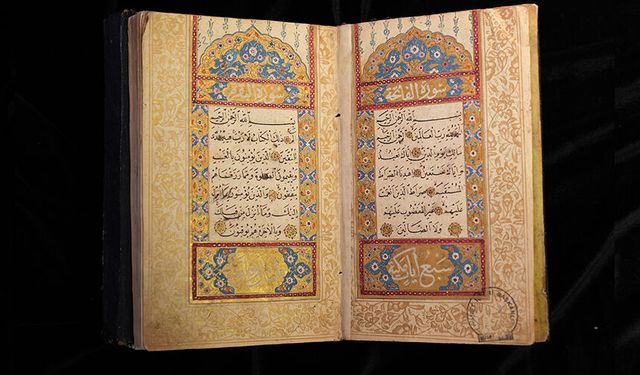 سورة الفاتحة
بسم الله الرحمن الرحيم
الحمد لله رب العالمين الرحمن الرحيم
ملك يوم الدين اياك نعبد
واياك نستعين اهدنا الصراط
المستقيم صراط الذين انعمت
عليهم غير المغضوب عليهم
ولا الضالين
سبع ايات
سورة البقرة
بسم الله الرحمن الرحيم
الم ذلك الكتاب لا ريب فيه هدى
للمتقين الذين يؤمنون بالغيب
ويقيمون الصلوة ومما رزقناهم
ينفقون والذين يؤمنون بما انزل
اليك وما انزل من قبلك
وبالاخرة هم يوقنون